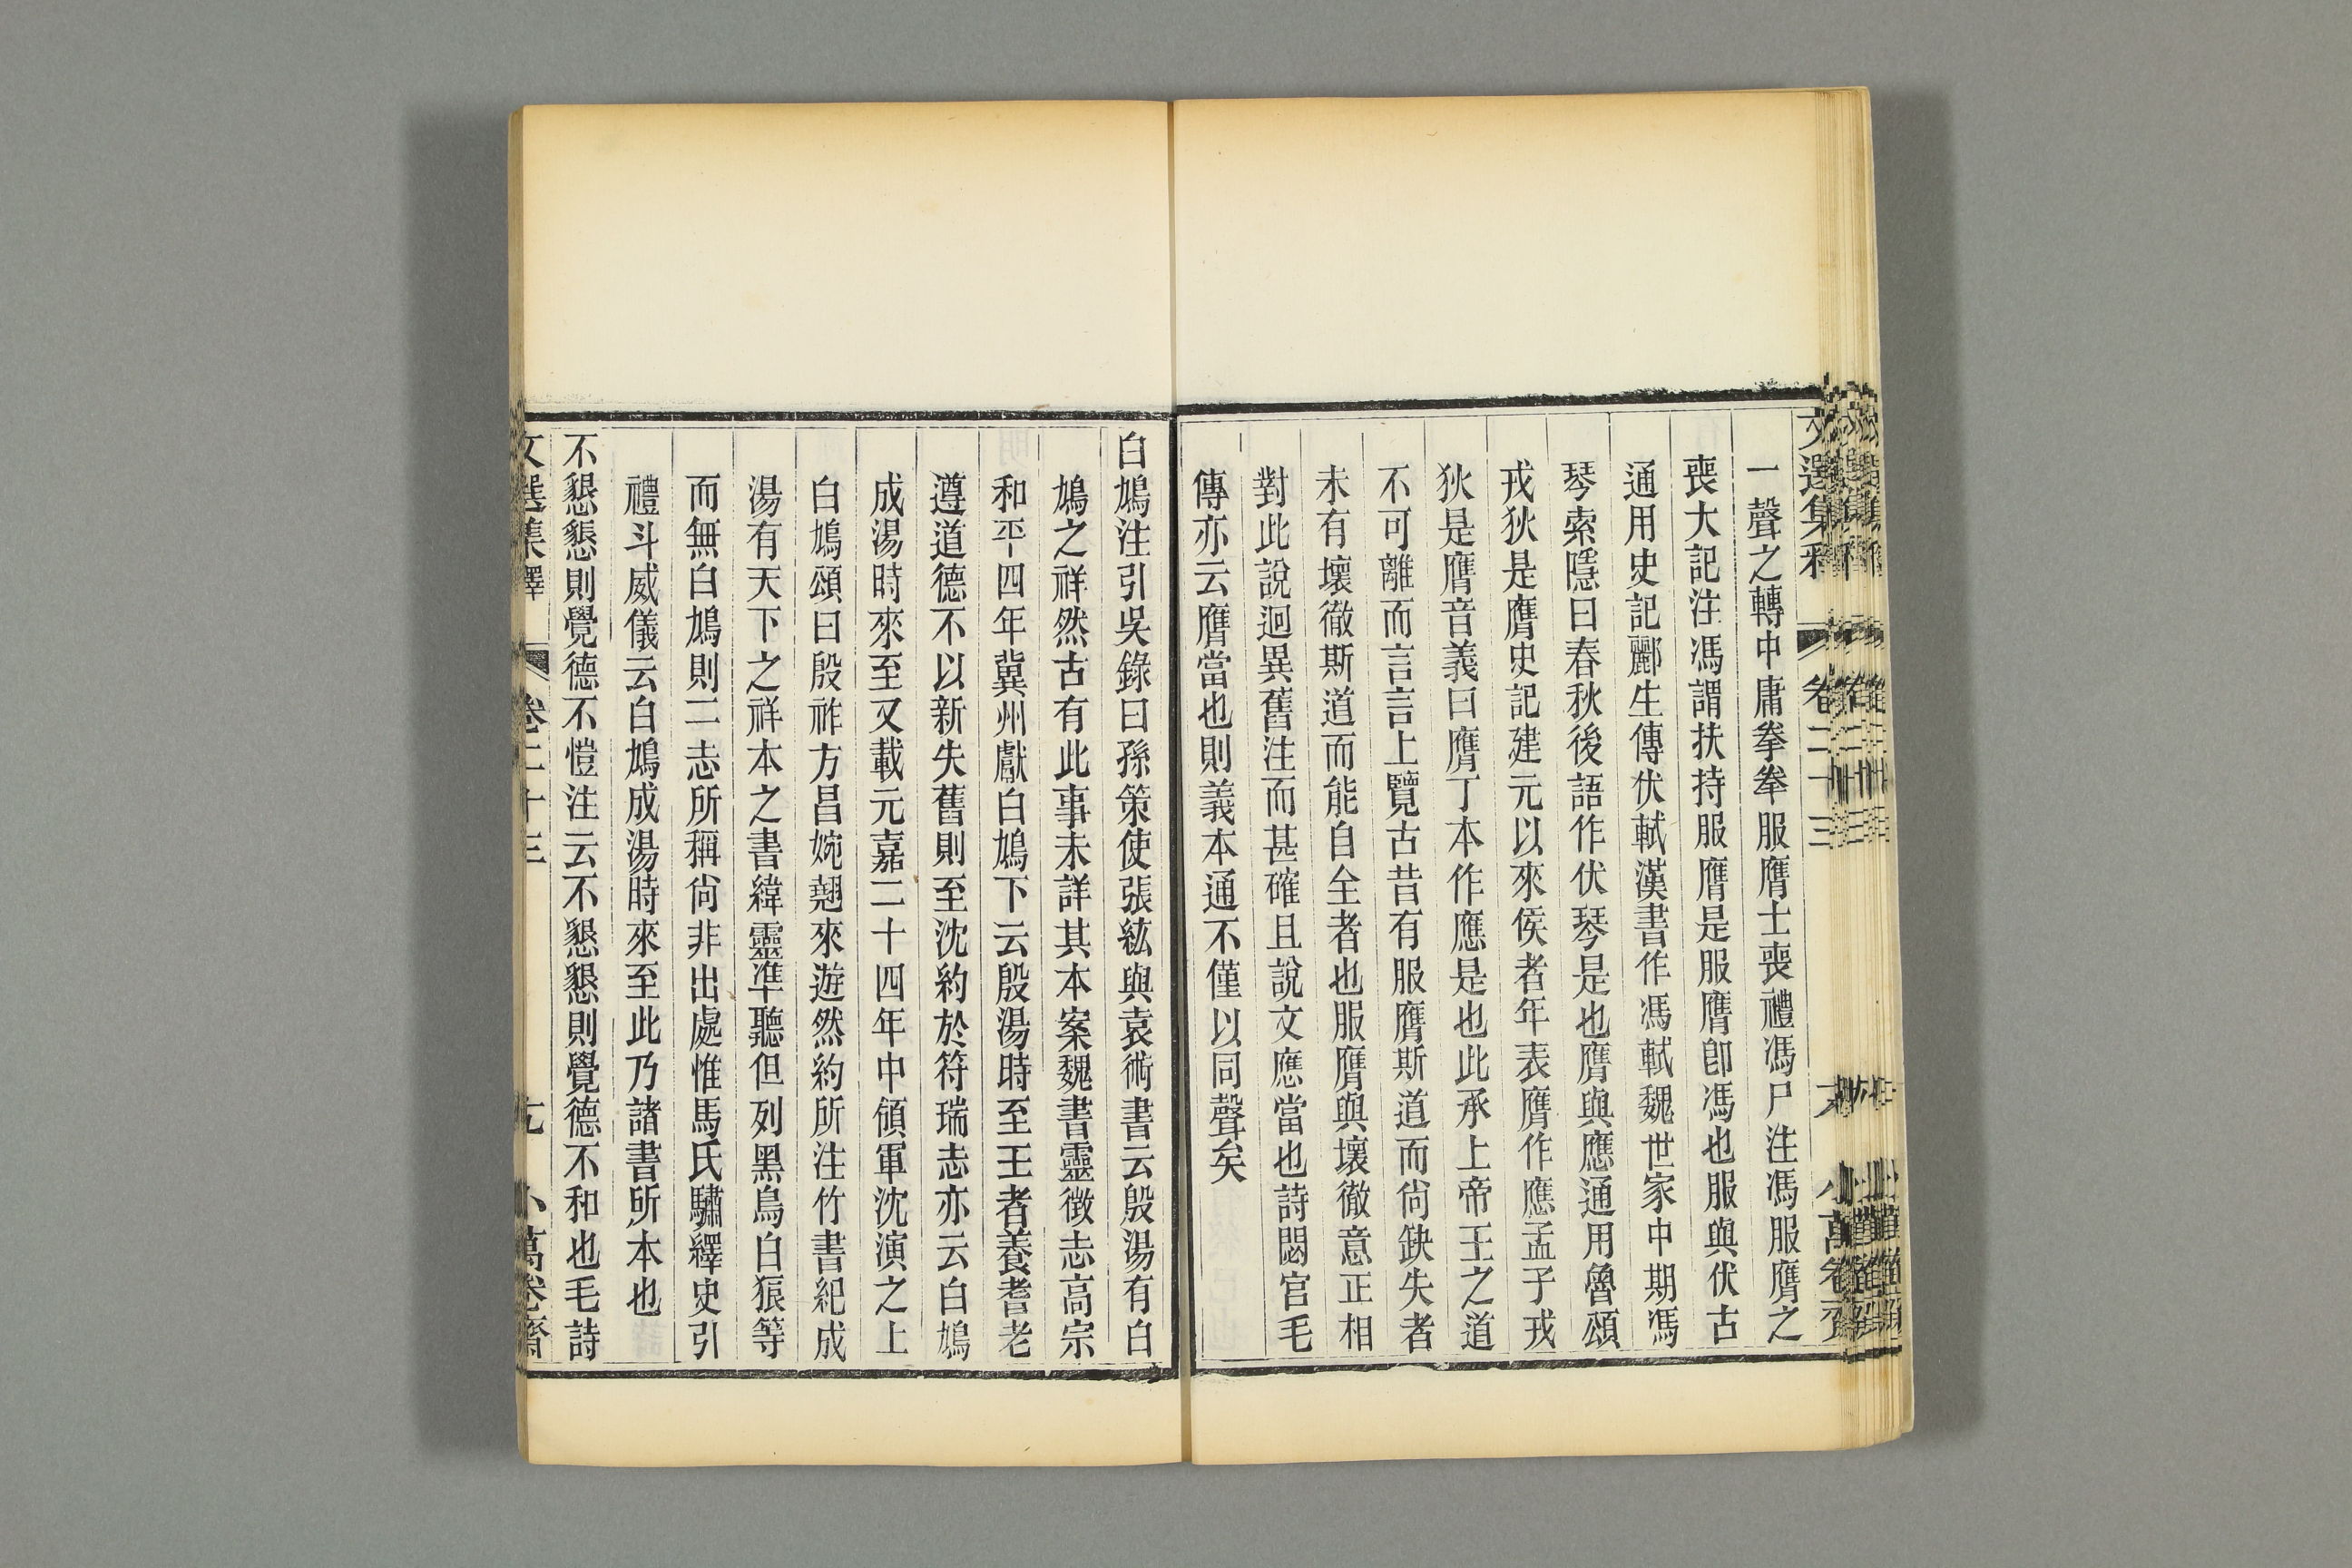 一聲之轉中庸拳拳服膺士喪禮馮尸注馮服膺之
喪大記注馮謂扶持服膺是服膺卽馮也服與伏古
通用史記酈生傳伏軾漢書作馮軾魏世家中期馮
琴索隱曰春秋後語作伏琴是也膺與應通用魯頌
戎狄是膺史記建元以來侯者年表膺作應孟子戎
狄是膺音義曰膺丁本作應是也此承上帝王之道
不可離而言言上覽古昔有服膺斯道而尙缺失者
未有壞徹斯道而能自全者也服膺與壞徹意正相
對此說迥異舊注而甚確且說文應當也詩閟宮毛
傳亦云膺當也則義本通不僅以同聲矣
白鳩注引吳錄曰孫策使張紘與袁術書云殷湯有白
鳩之祥然古有此事未詳其本案魏書靈徵志高宗
和平四年冀州獻白鳩下云殷湯時至王者養耆老
遵道德不以新失舊則至沈約於符瑞志亦云白鳩
成湯時來至又載元嘉二十四年中領軍沈演之上
白鳩頌曰殷祚方昌婉翹來遊然約所注竹書紀成
湯有天下之祥本之書緯靈準聽但列黑鳥白狼等
而無白鳩則二志所稱尙非出處惟馬氏驌繹史引
禮斗威儀云白鳩成湯時來至此乃諸書所本也
不懇懇則覺德不愷注云不懇懇則覺德不和也毛詩
文選集釋 卷二十三 小萬卷齋